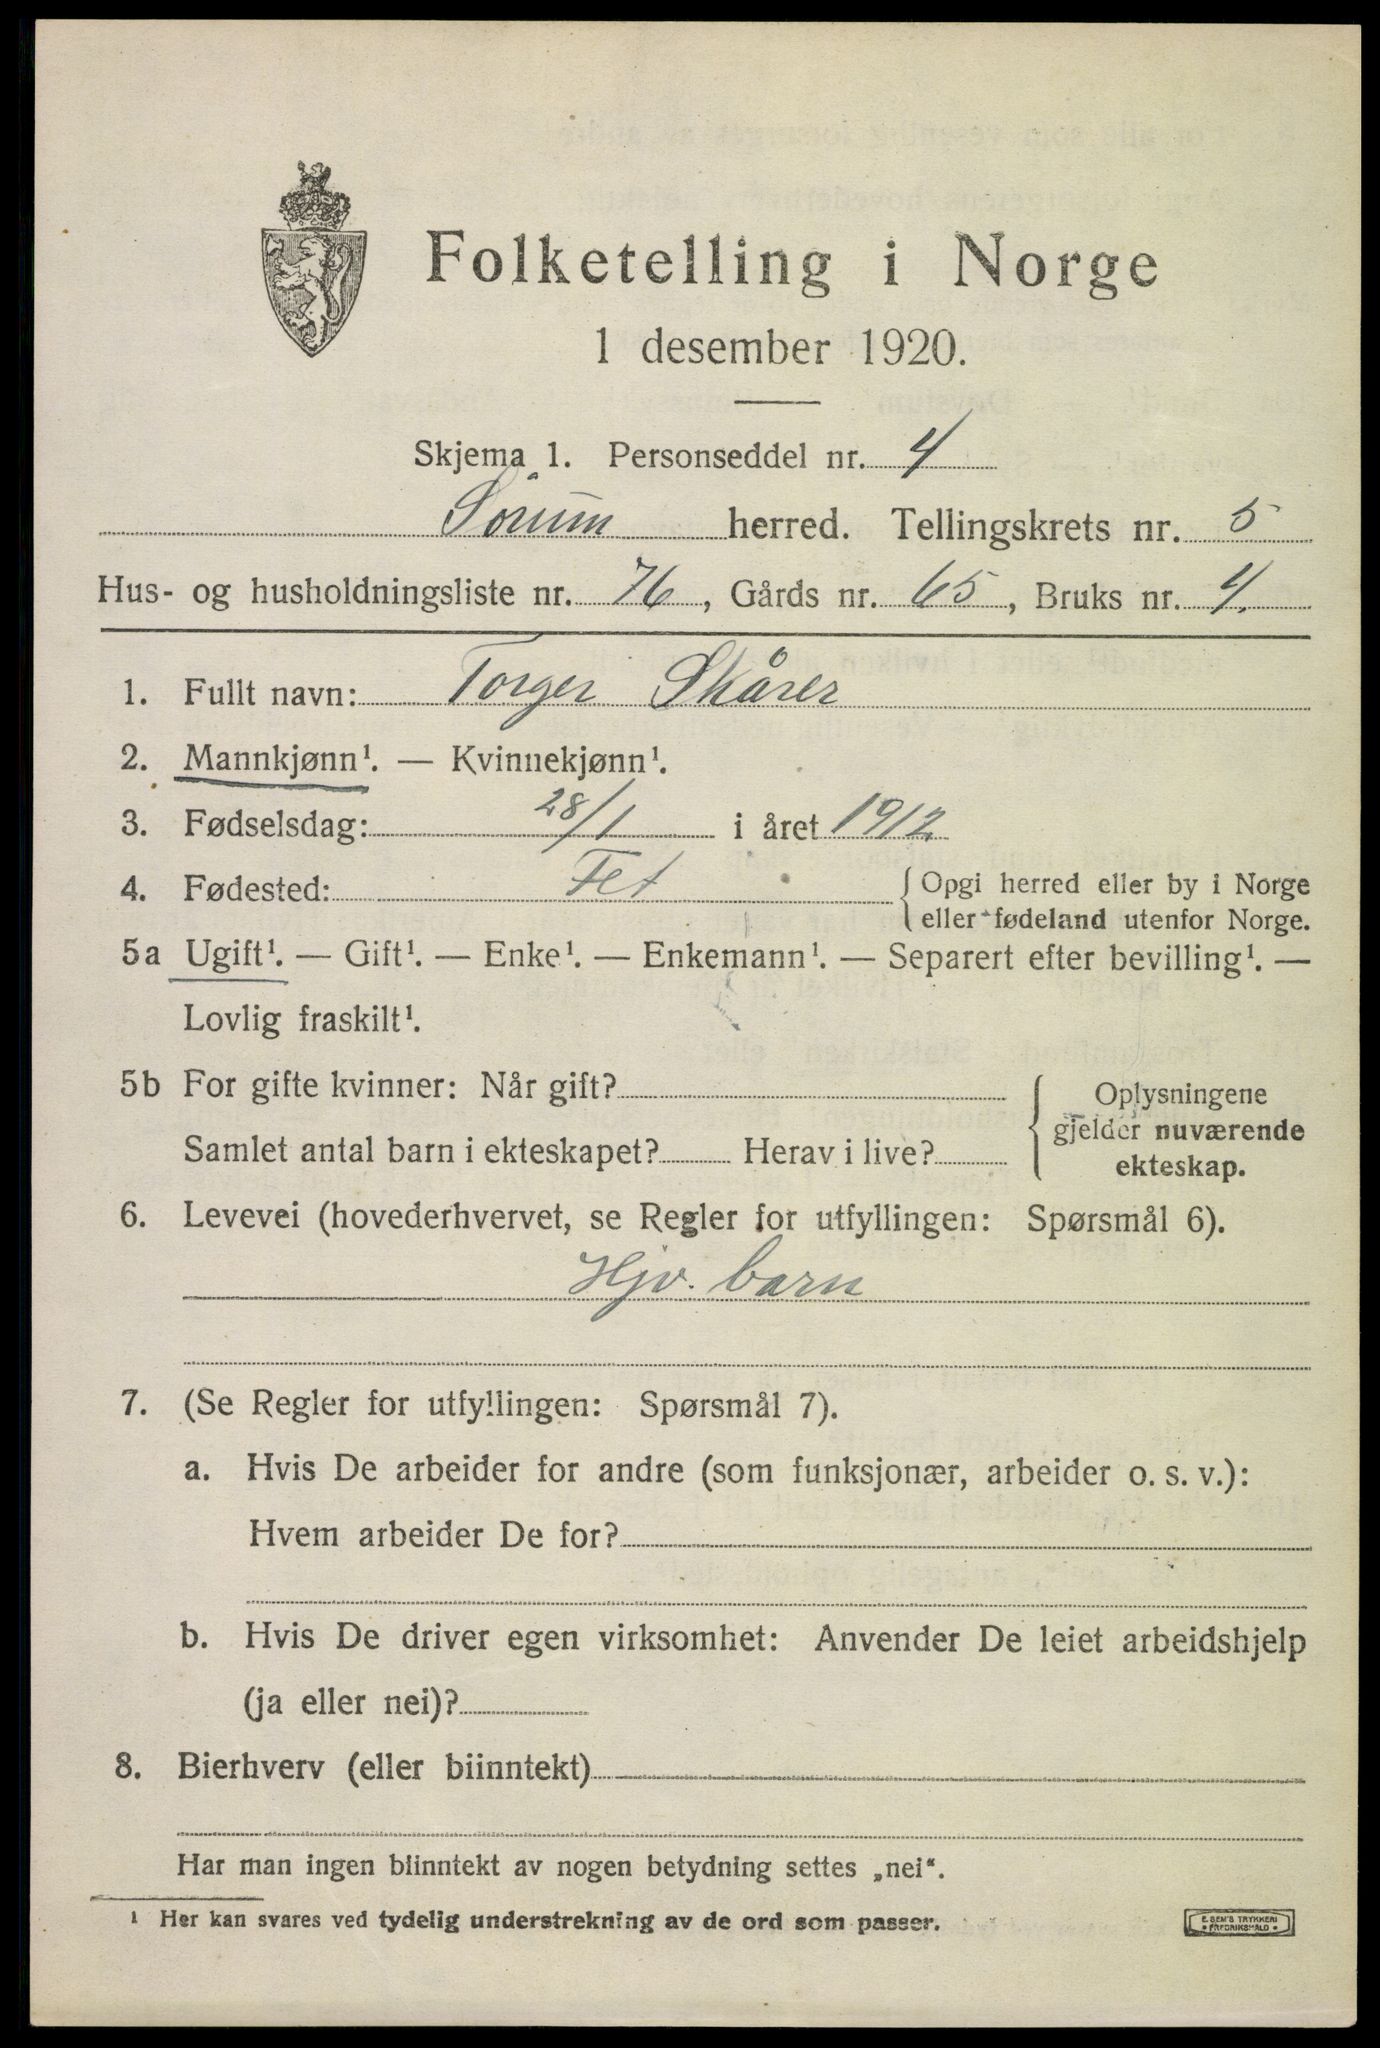 Folketelling i Norge
1 desember 1920.
Skjema 1. Personseddel nr. 4
Sørum herred. Tellingskrets nr. 5
Hus- og husholdningsliste nr. 76, Gårds nr. 65, Bruks nr. 4.
1. Fullt navn: Torger Skårer
2. Mannkjønn¹. — Kvinnekjønn¹.
3. Fødselsdag: 28/1 i året 1912
4. Fødested: Fet { Opgi herred eller by i Norge
eller fødeland utenfor Norge.
5a Ugift¹. — Gift¹. — Enke¹. — Enkemann¹. — Separert efter bevilling¹. —
Lovlig fraskilt¹.
5b For gifte kvinner: Når gift?
Samlet antal barn i ekteskapet? Herav i live?
Oplysningene
gjelder nuværende
ekteskap.
6. Levevei (hovederhvervet, se Regler for utfyllingen: Spørsmål 6).
Hjv. barn
7. (Se Regler for utfyllingen: Spørsmål 7).
a. Hvis De arbeider for andre (som funksjonær, arbeider o. s. v.):
Hvem arbeider De for?
b. Hvis De driver egen virksomhet: Anvender De leiet arbeidshjelp
(ja eller nei)?
8. Bierhverv (eller biinntekt)
Har man ingen biinntekt av nogen betydning settes „nei“.
¹ Her kan svares ved tydelig understrekning av de ord som passer.
E. SEM'S TRYKKERI
• FREDRIKSHALD •